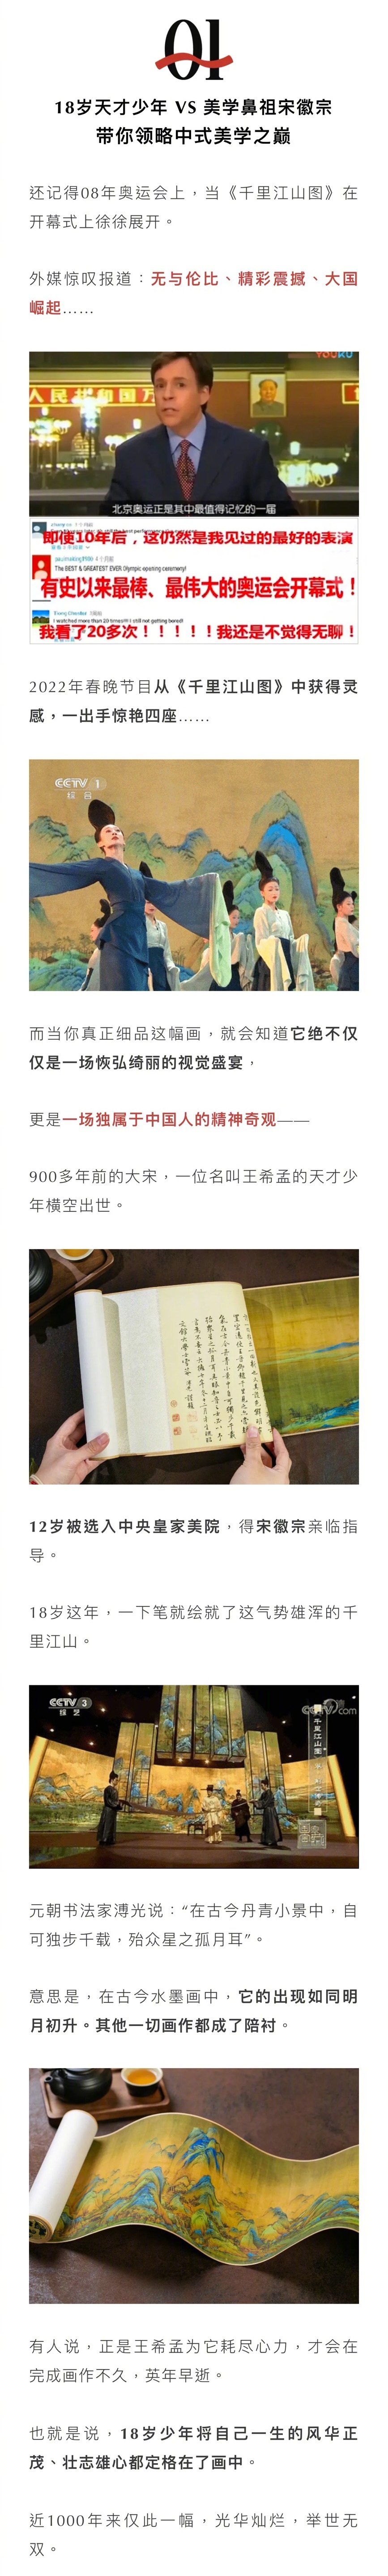 01
18岁天才少年 VS 美学鼻祖宋徽宗
带你领略中式美学之巅
还记得08年奥运会上，当《千里江山图》在
开幕式上徐徐展开。
外媒惊叹报道：无与伦比、精彩震撼、大国
崛起……
YOUKU
人民共和国万
北京奥运正是其中最值得记忆的一届
即使10年后，这仍然是我见过的最好的表演
The BEST & GREATEST EVER Olympic opening ceremony!
有史以来最棒、最伟大的奥运会开幕式！
I watched more than 20 times!!! I still not getting bored!
我看了20多次！！！！！我还是不觉得无聊！
2022年春晚节目从《千里江山图》中获得灵
感，一出手惊艳四座……
CCTV 1
综合
而当你真正细品这幅画，就会知道它绝不仅
仅是一场恢弘绮丽的视觉盛宴，
更是一场独属于中国人的精神奇观——
900多年前的大宋，一位名叫王希孟的天才少
年横空出世。
12岁被选入中央皇家美院，得宋徽宗亲临指
导。
18岁这年，一下笔就绘就了这气势雄浑的千
里江山。
CCTV 3
综艺
千里江山图
元朝书法家溥光说：“在古今丹青小景中，自
可独步千载，殆众星之孤月耳”。
意思是，在古今水墨画中，它的出现如同明
月初升。其他一切画作都成了陪衬。
有人说，正是王希孟为它耗尽心力，才会在
完成画作不久，英年早逝。
也就是说，18岁少年将自己一生的风华正
茂、壮志雄心都定格在了画中。
近1000年来仅此一幅，光华灿烂，举世无
双。